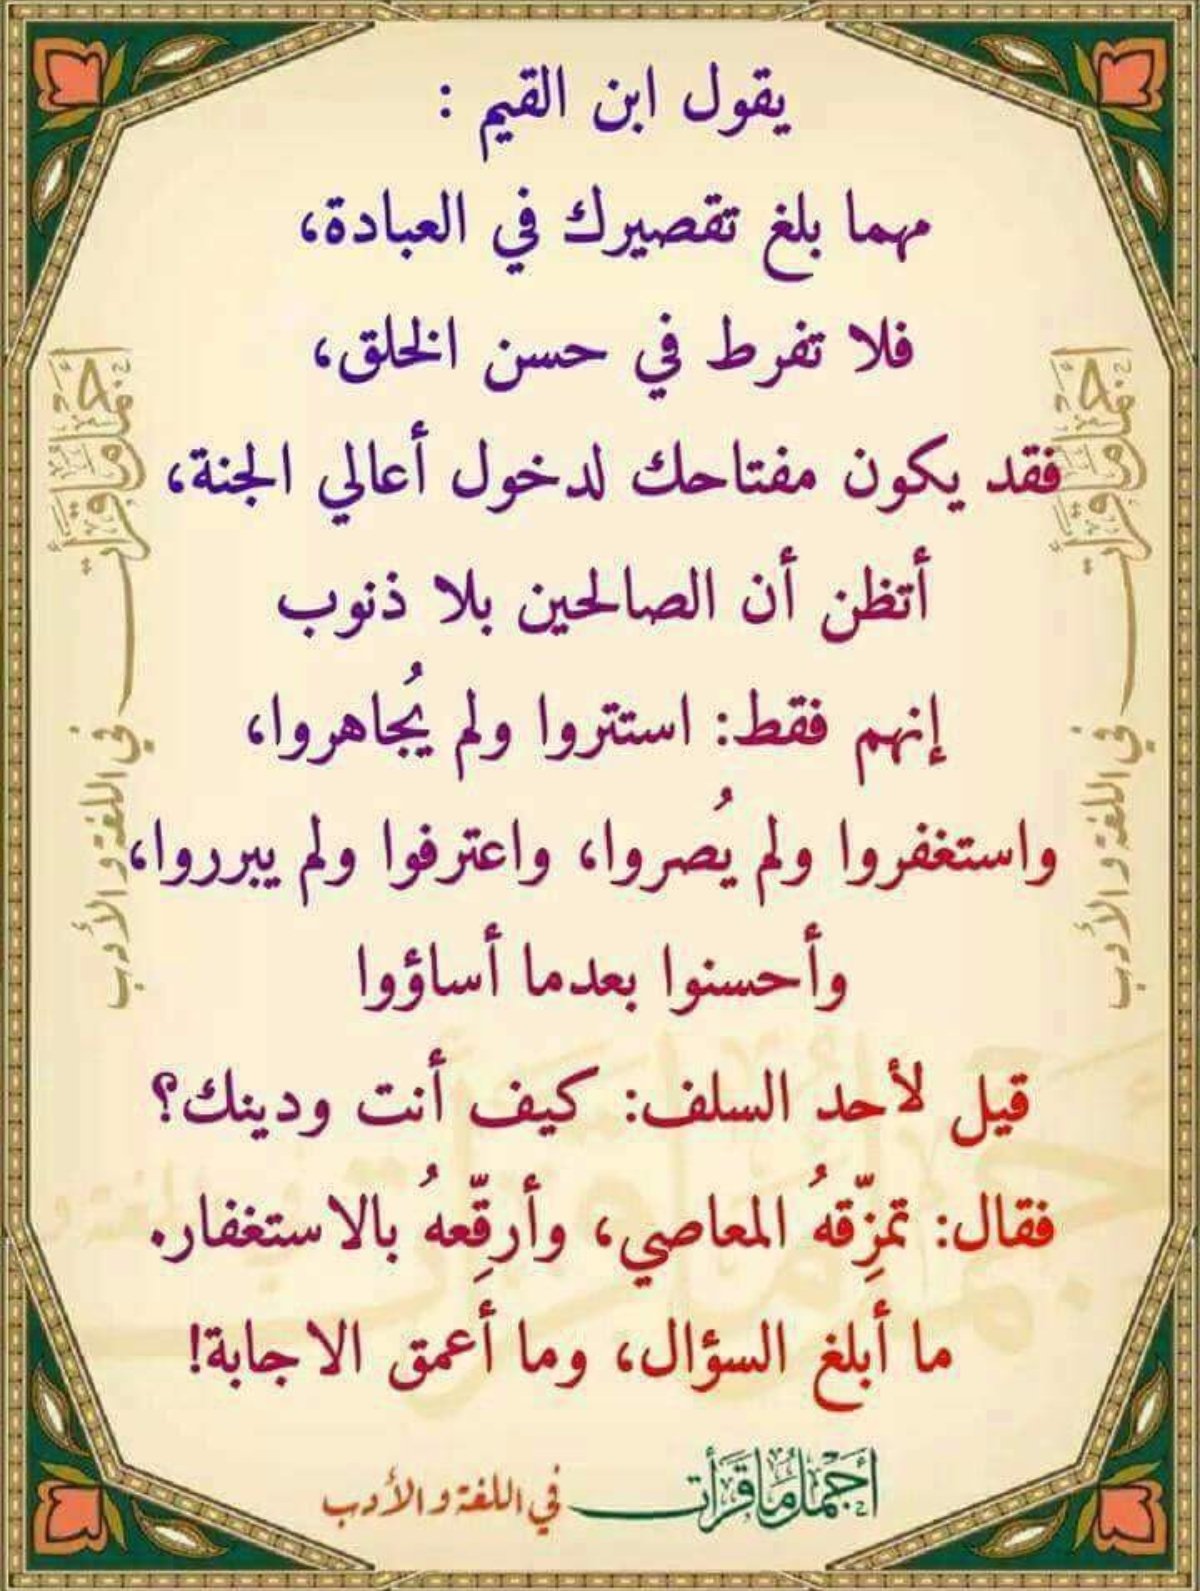 يقول ابن القيم :
مهما بلغ تقصيرك في العبادة،
فلا تفرط في حسن الخلق،
فقد يكون مفتاحك لدخول أعالي الجنة،
أتظن أن الصالحين بلا ذنوب
إنهم فقط: استتروا ولم يُجاهروا،
واستغفروا ولم يُصروا، واعترفوا ولم يبرروا،
وأحسنوا بعدما أساؤوا
قيل لأحد السلف: كيف أنت ودينك؟
فقال: تمزِّقهُ المعاصي، وأرقِّعهُ بالاستغفار.
ما أبلغ السؤال، وما أعمق الاجابة!
أجمل ما قرأت في اللغة و الأدب
أجمل ما قرأت في اللغة و الأدب
أجمل ما قرأت في اللغة و الأدب